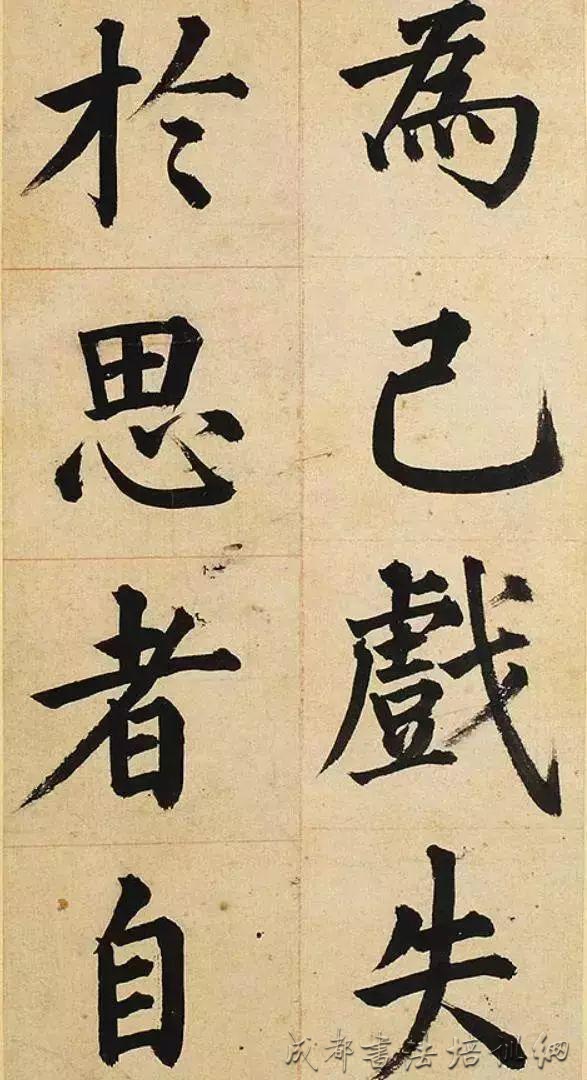 為己戲失
於思者自
成都書法培训網